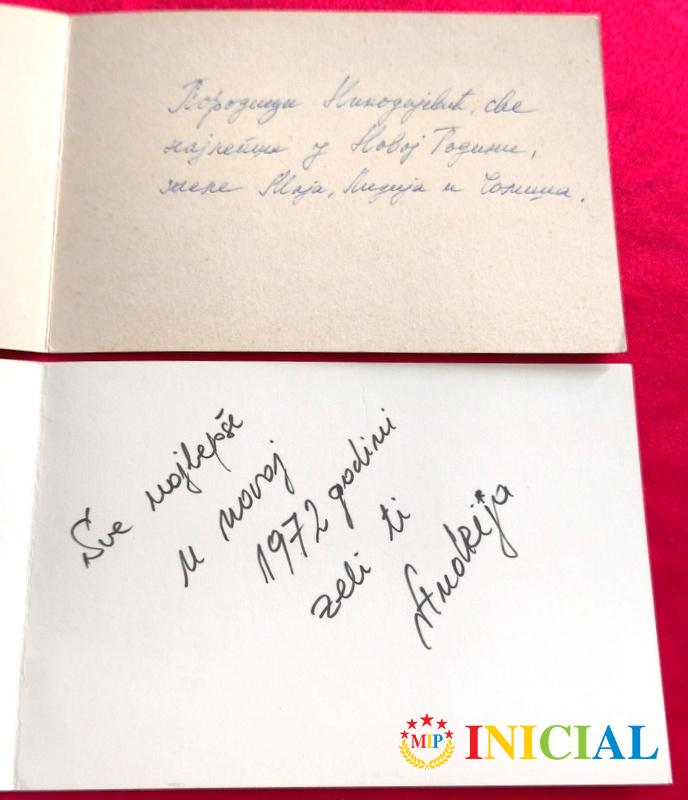 Породици Никодијевић, све
најлепше у Новој Години,
желе Маја, Лидија и Соњица.
Sve najlepše
u novoj
1972 godini
želi ti
Andrija
MIP INICIAL